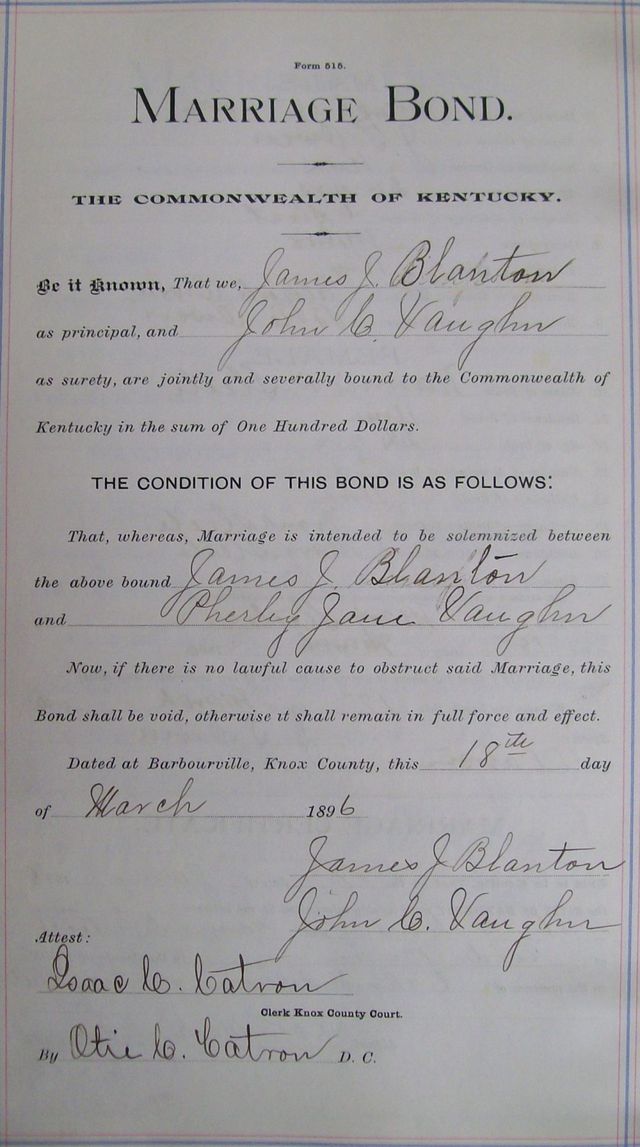 Form 515.
MARRIAGE BOND.
THE COMMONWEALTH OF KENTUCKY.
Be it Known, That we, James J. Blanton
as principal, and John C. Vaughn
as surety, are jointly and severally bound to the Commonwealth of
Kentucky in the sum of One Hundred Dollars.
THE CONDITION OF THIS BOND IS AS FOLLOWS:
That, whereas, Marriage is intended to be solemnized between
the above bound James J. Blanton
and Pherby Jane Vaughn
Now, if there is no lawful cause to obstruct said Marriage, this
Bond shall be void, otherwise it shall remain in full force and effect.
Dated at Barbourville, Knox County, this 18th day
of March 1896
James J Blanton
John C. Vaughn
Attest:
Isaac C. Catron
Clerk Knox County Court.
By Otie C. Catron D. C.